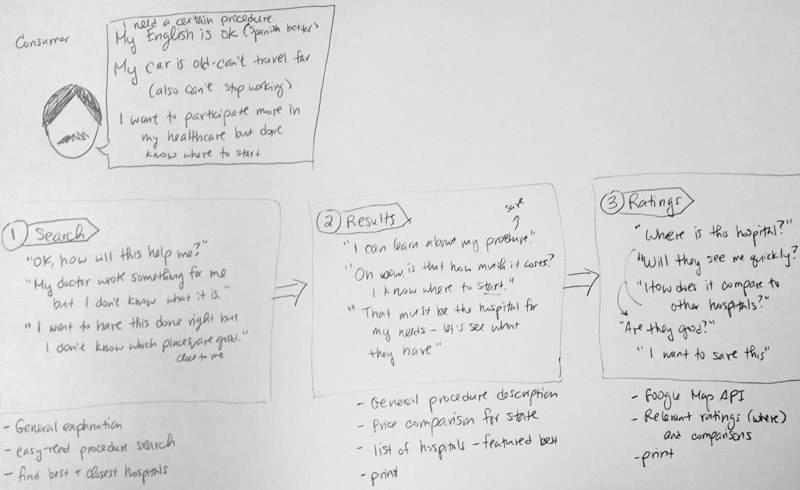 Consumer
i need a certain procedure.
My English is OK (Spanish better)
My car is old-can't travel far
(also can't stop working)
I want to participate more in
my healthcare but don't
know where to start
1 Search
"OK, how will this help me?"
"My doctor wrote something for me
but I don't know what it is."
"I want to have this done right but
I don't know which places are good."
close to me
- General explanation
- easy-read procedure search
- find best + closest hospitals
2 Results
save
"I can learn about my procedure."
"Oh wow, is that how much it costs?
I know where to start."
"That must be the hospital for
my needs - let's see what
they have"
- General procedure description
- Price comparison for state
- list of hospitals - featured best
- print
3 Ratings
"Where is this hospital?"
"Will they see me quickly?
"How does it compare to
other hospitals?"
"Are they good?"
"I want to save this"
- Google Map API
- Relevant ratings (where)
and comparisons
- print